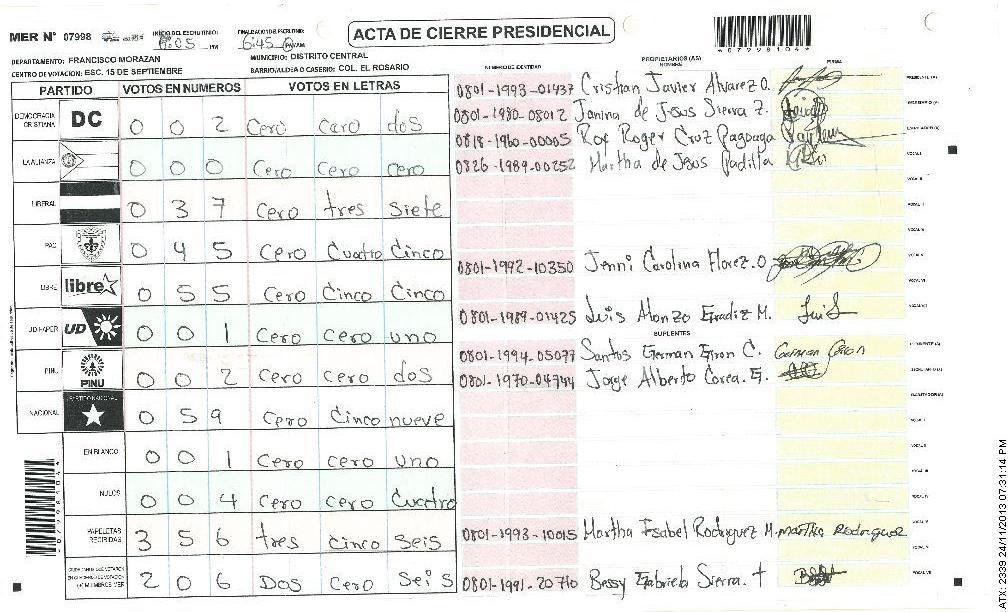 MER N° 07998
INICIO DEL ESCRUTINIO: 6:05 PM
FINALIZACION ESCRUTINIO: 6:45
ACTA DE CIERRE PRESIDENCIAL
*07998104*
DEPARTAMENTO: FRANCISCO MORAZAN
MUNICIPIO: DISTRITO CENTRAL
CENTRO DE VOTACION: ESC. 15 DE SEPTIEMBRE
BARRIO/ALDEA O CASERIO: COL. EL ROSARIO
PARTIDO VOTOS EN NUMEROS VOTOS EN LETRAS
DEMOCRACIA CRISTIANA DC 0 0 2 Cero cero dos
LA ALIANZA 0 0 0 Cero Cero cero
LIBERAL 0 3 7 Cero tres siete
PAC 0 4 5 Cero Cuatro Cinco
LIBRE libre 0 5 5 Cero Cinco Cinco
UD-FAPER UD 0 0 1 Cero cero uno
PINU PINU 0 0 2 Cero cero dos
NACIONAL PARTIDO NACIONAL 0 5 9 Cero Cinco nueve
EN BLANCO 0 0 1 Cero cero uno
NULOS 0 0 4 Cero cero Cuatro
PAPELETAS RECIBIDAS 3 5 6 tres cinco seis
2 0 6 Dos Cero Seis
NUMERO DE IDENTIDAD PROPIETARIOS (AS) NOMBRE FIRMA
0801-1993-01437 Cristian Javier Alvarez O. PRESIDENTE (A)
0801-1980-08012 Janina de Jesus Sierra Z. SECRETARIO (A)
0818-1960-00005 Roy Roger Cruz Pagoaga ESCRUTADOR (A)
0826-1989-00252 Martha de Jesus Padilla VOCAL I
VOCAL II
VOCAL III
VOCAL IV
0801-1992-10350 Jenni Carolina Florez. O VOCAL V
VOCAL VI
0801-1989-01425 Luis Alonzo Eradiz M. Luis VOCAL VII
SUPLENTES
0801-1994-05077 Santos German Giron C. German Giron PRESIDENTE (A)
0801-1970-04744 Jorge Alberto Corea. G. SECRETARIO (A)
ESCRUTADOR (A)
VOCAL I
VOCAL II
VOCAL III
VOCAL IV
0801-1993-10015 Martha Isabel Rodriguez M. martha Rodriguez VOCAL V
VOCAL VI
0801-1991-20710 Bessy Gabriela Sierra. t VOCAL VII
*07998104*
ATX: 2339 24/11/2013 07:31:14 PM